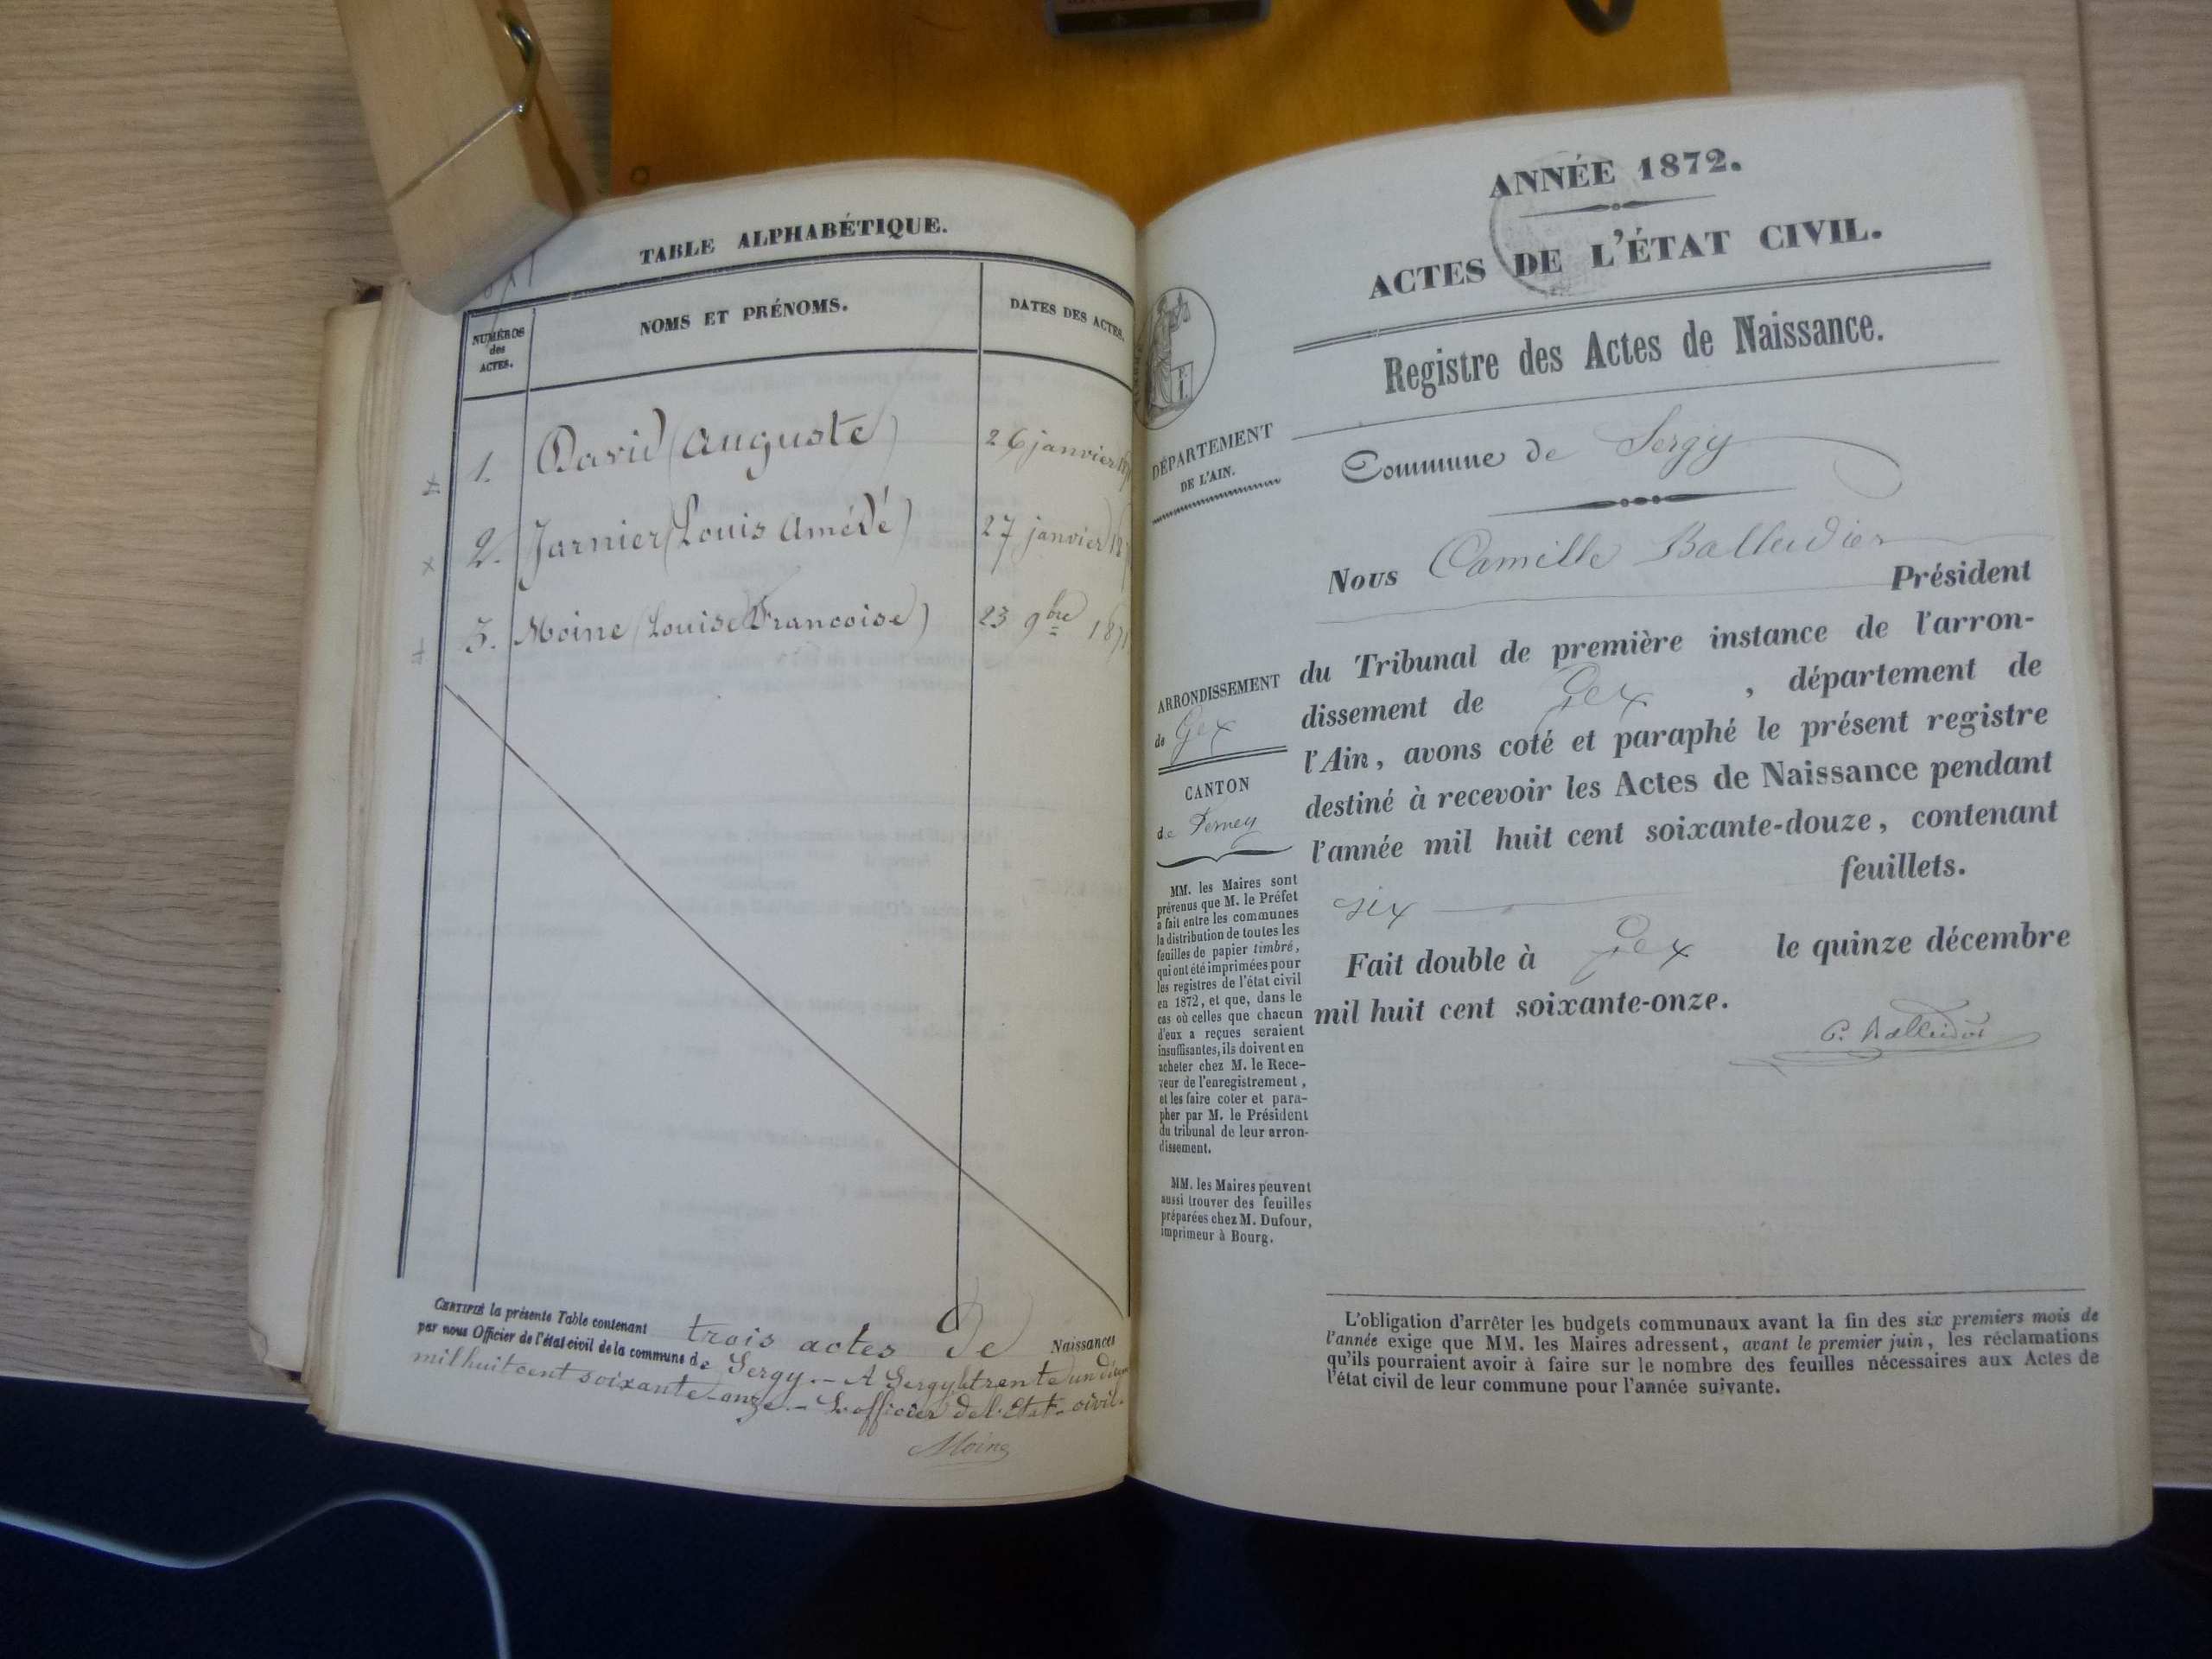 TABLE ALPHABÉTIQUE.
NUMÉROS
des
ACTES.
NOMS ET PRÉNOMS.
DATES DES ACTES.
1. David (Auguste) 26 janvier
2. Jarnier (Louis Amédé) 27 janvier
3. Moine (Louise Francoise) 23 9bre 1871
CERTIFIÉ la présente Table contenant trois actes de Naissances
par nous Officier de l'état civil de la commune de Sergy. – A Sergy le trente un
mil huit cent soixante-onze. – L'officier de l'Etat-civil.
Moine
ANNÉE 1872.
ACTES DE L'ÉTAT CIVIL.
Registre des Actes de Naissance.
DÉPARTEMENT
DE L'AIN.
Commune de Sergy
Nous Camille Balleidier
Président
du Tribunal de première instance de l'arron-
dissement de Gex, département de
l'Ain, avons coté et paraphé le présent registre
destiné à recevoir les Actes de Naissance pendant
l'année mil huit cent soixante-douze, contenant
six feuillets.
Fait double à Gex le quinze décembre
mil huit cent soixante-onze.
C. Balleidier
ARRONDISSEMENT
de Gex
CANTON
de Ferney
MM. les Maires sont
prévenus que M. le Préfet
a fait entre les communes
la distribution de toutes les
feuilles de papier timbré,
qui ont été imprimées pour
les registres de l'état civil
en 1872, et que, dans le
cas où celles que chacun
d'eux a reçues seraient
insuffisantes, ils doivent en
acheter chez M. le Rece-
veur de l'enregistrement,
et les faire coter et para-
pher par M. le Président
du tribunal de leur arron-
dissement.
MM. les Maires peuvent
aussi trouver des feuilles
préparées chez M. Dufour,
imprimeur à Bourg.
L'obligation d'arrêter les budgets communaux avant la fin des six premiers mois de
l'année exige que MM. les Maires adressent, avant le premier juin, les réclamations
qu'ils pourraient avoir à faire sur le nombre des feuilles nécessaires aux Actes de
l'état civil de leur commune pour l'année suivante.